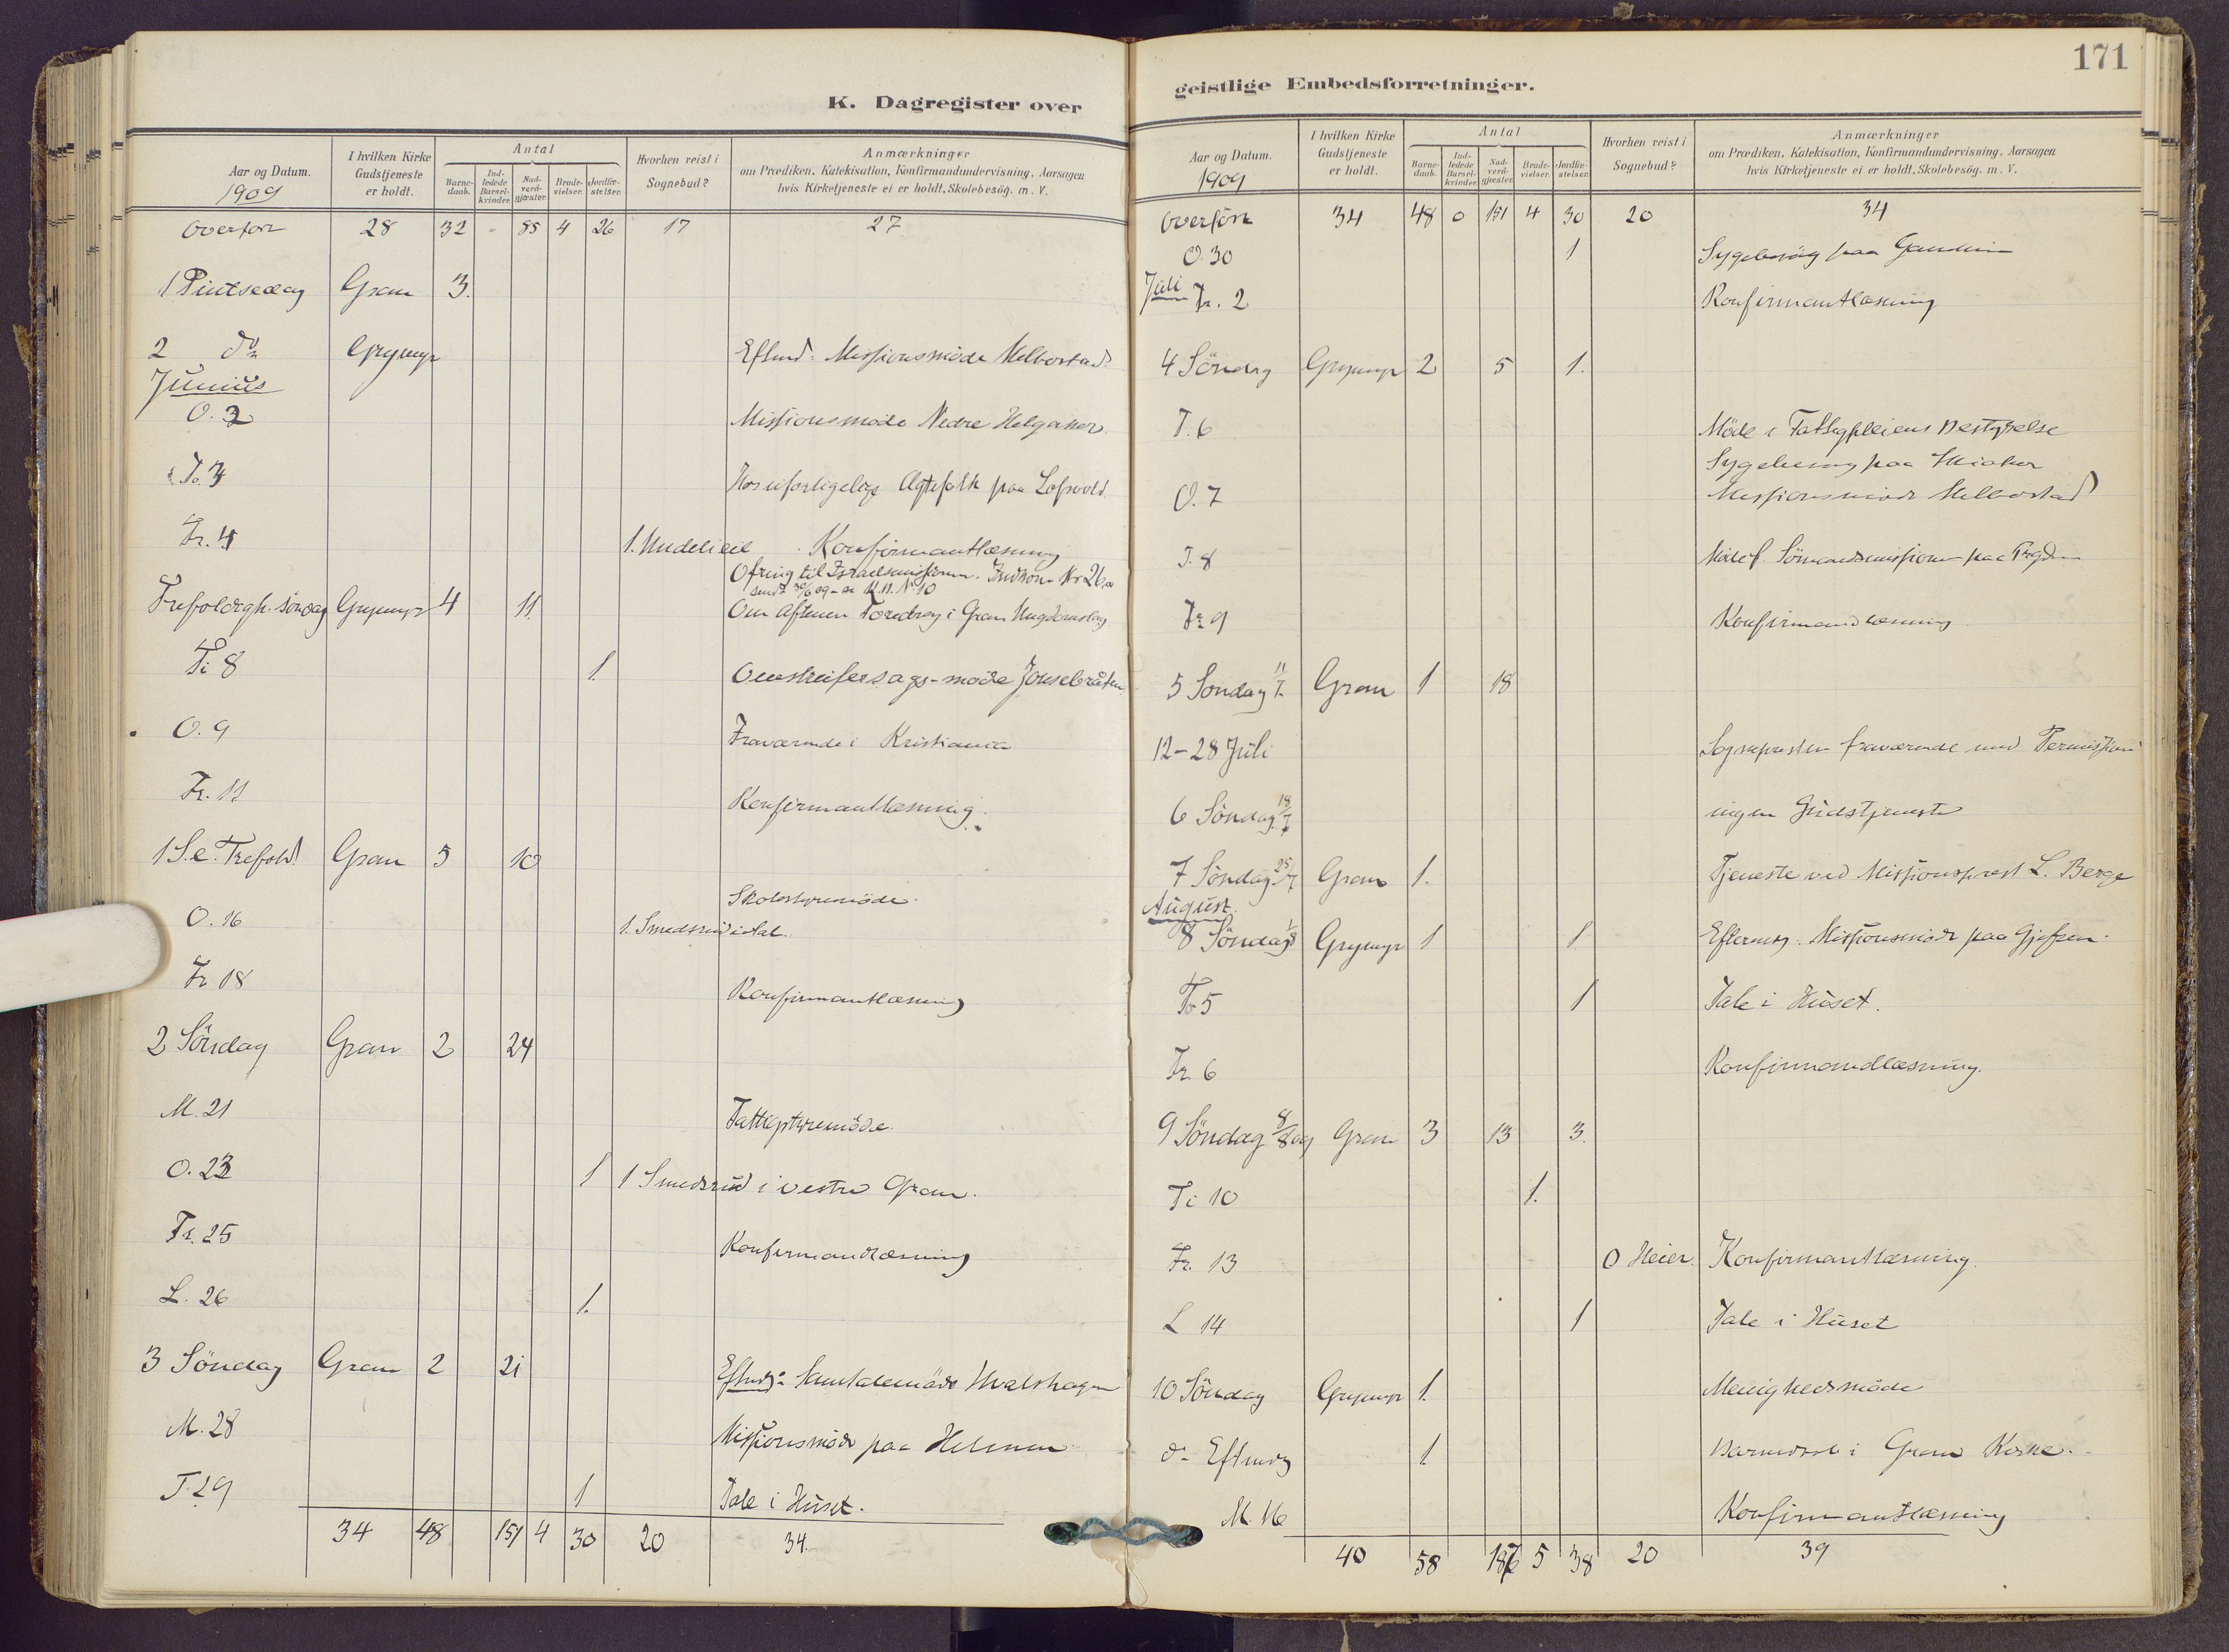 K. Dagregister over
Aar og Datum. 1909 | I hvilken Kirke Gudstjeneste er holdt. | Antal | Barne-daab. | Ind-ledede Barsel-kvinder. | Nad-verd-gjæster. | Brude-vielser. | Jordfæ-stelser. | Hvorhen reist i Sognebud? | Anmærkninger om Prædiken, Katekisation, Konfirmandundervisning, Aarsagen hvis Kirketjeneste ei er holdt, Skolebesög. m. V.
Overfor 28 32 - 85 4 26 17 27
1 Pintsedag Gran 3.
2 do Grymyr Eftmd. Missionsmöde Helbostad
Junius
O. 2 Missionsmöde Nedre Helgaker
To. 3 Hos uforligelige Ægtefolk paa
Fr. 4 1. Konfirmantlæsning
Ofring til Israelsmissionen. Indkom Kr 26
send 30/6 09 K.N. No 10
Trefoldigh. söndag Grymyr 4 11. Om Aftenen Foredrag i Gran Ungdomslag
Ti 8 1. Omstreifersags-möde Jonsebråten
O. 9 Fraværende i Kristiania
Fr. 11 Konfirmantlæsning.
1 S. e. Trefold. Gran 5 10
Skolestyremöde.
O. 16 1. Smedsrud i Aal.
Fr 18 Konfirmantlæsning
2 Söndag Gran 2 24
M. 21 Fattigstyremöde.
O. 23 1 1 Smedsrud i vestre Gran.
Fr. 25 Konfirmandlæsning
L. 26 1.
3 Söndag Gran 2 21 Eftmdg: Samtalemöde Hvalshagen
M. 28 Missionsmöde paa Helmen
T. 29 1 Tale i Huset.
34 48 151 4 30 20 34.
171
geistlige Embedsforretninger.
Aar og Datum. 1909 | I hvilken Kirke Gudstjeneste er holdt. | Antal | Barne-daab. | Ind-ledede Barsel-kvinder. | Nad-verd-gjæster. | Brude-vielser. | Jordfæ-stelser. | Hvorhen reist i Sognebud? | Anmærkninger om Prædiken, Katekisation, Konfirmandundervisning, Aarsagen hvis Kirketjeneste ei er holdt, Skolebesög. m. V.
Overfört 34 48 0 151 4 30 20 34
O. 30 1 Sygebesög paa
Juli
Fr. 2 Konfirmantlæsning
4 Söndag Grymyr 2 5 1.
T. 6 Möde i Fattigpleiens Bestyrelse
Sygebesög paa
O. 7 Missionsmöde Helbostad
T. 8 Möde f. Sömandsmissionen paa
Fr 9 Konfirmandlæsning
5 Söndag 11/7 Gran 1 18
12-28 Juli Sognepresten fraværende med Permission
6 Söndag 18/7 ingen Gudstjeneste
7 Söndag 25/7 Gran 1. Tjeneste ved Missionsprest L. Berge
August.
8 Söndag 1/8 Grymyr 1 1 Eftermdg. Missionsmöde paa Gjefsen.
To 5 1 Tale i Huset.
Fr. 6 Konfirmandlæsning.
9 Söndag 8/8 09 Gran 3 13 3.
Ti 10 1.
Fr. 13 O Heier. Konfirmantlæsning.
L 14 1 Tale i Huset
10 Söndag Grymyr 1. Menighedsmöde
do Eftmdg 1 Barnedaab i Gran Kirke.
M. 16 Konfirmantlæsning
40 58 186 5 38 20 39